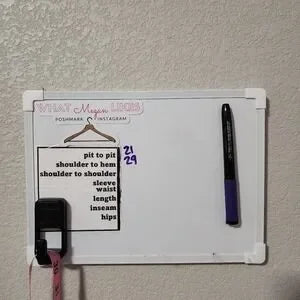 WHAT Megan LIKES
POSHMARK INSTAGRAM
pit to pit 21
shoulder to hem 29
shoulder to shoulder
sleeve
waist
length
inseam
hips